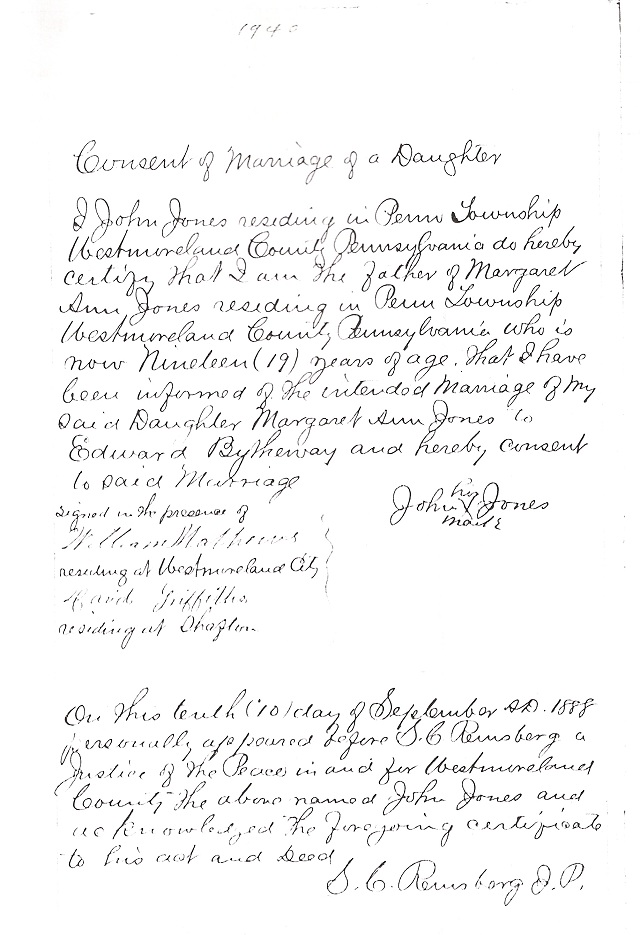 1940
Consent of Marriage of a Daughter
I John Jones residing in Penn Township
Westmoreland County Pennsylvania do hereby
certify that I am the father of Margaret
Ann Jones residing in Penn Township
Westmoreland County Pennsylvania who is
now Nineteen (19) years of age. That I have
been informed of the intended Marriage of my
said Daughter Margaret Ann Jones to
Edward Bytheway and hereby consent
to said Marriage
John his X mark Jones
Signed in the presence of
William Mathews
residing at Westmoreland City
David Griffiths
residing at Shafton
On this tenth (10) day of September A.D. 1888
personally appeared before S. C. Remsberg a
Justice of the Peace in and for Westmoreland
County the above named John Jones and
acknowledged the foregoing certificate
to his act and Deed
S. C. Remsberg J. P.